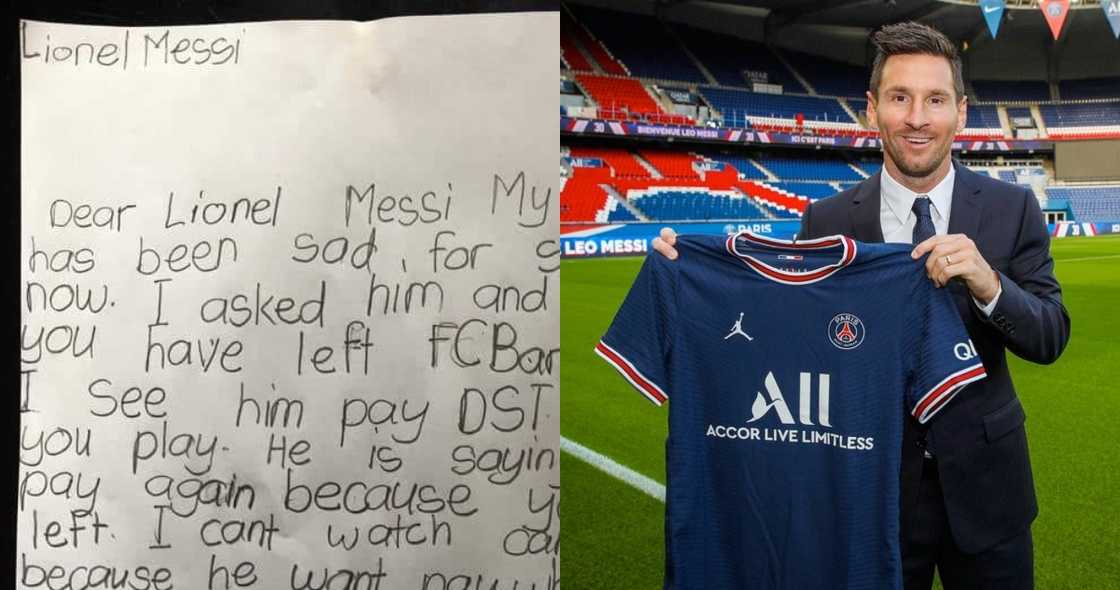 Lionel Messi
Dear Lionel Messi My
has been sad, for s
now. I asked him and
you have left FCBar
I See him pay DST
you play. He is sayin
pay again because y
left. I cant watch ca
because he want pay wh
BIENVENUE LEO MESSI
ICI C'EST PARIS
PARIS
LEO MESSI
PARIS
ALL
ACCOR LIVE LIMITLESS
QN